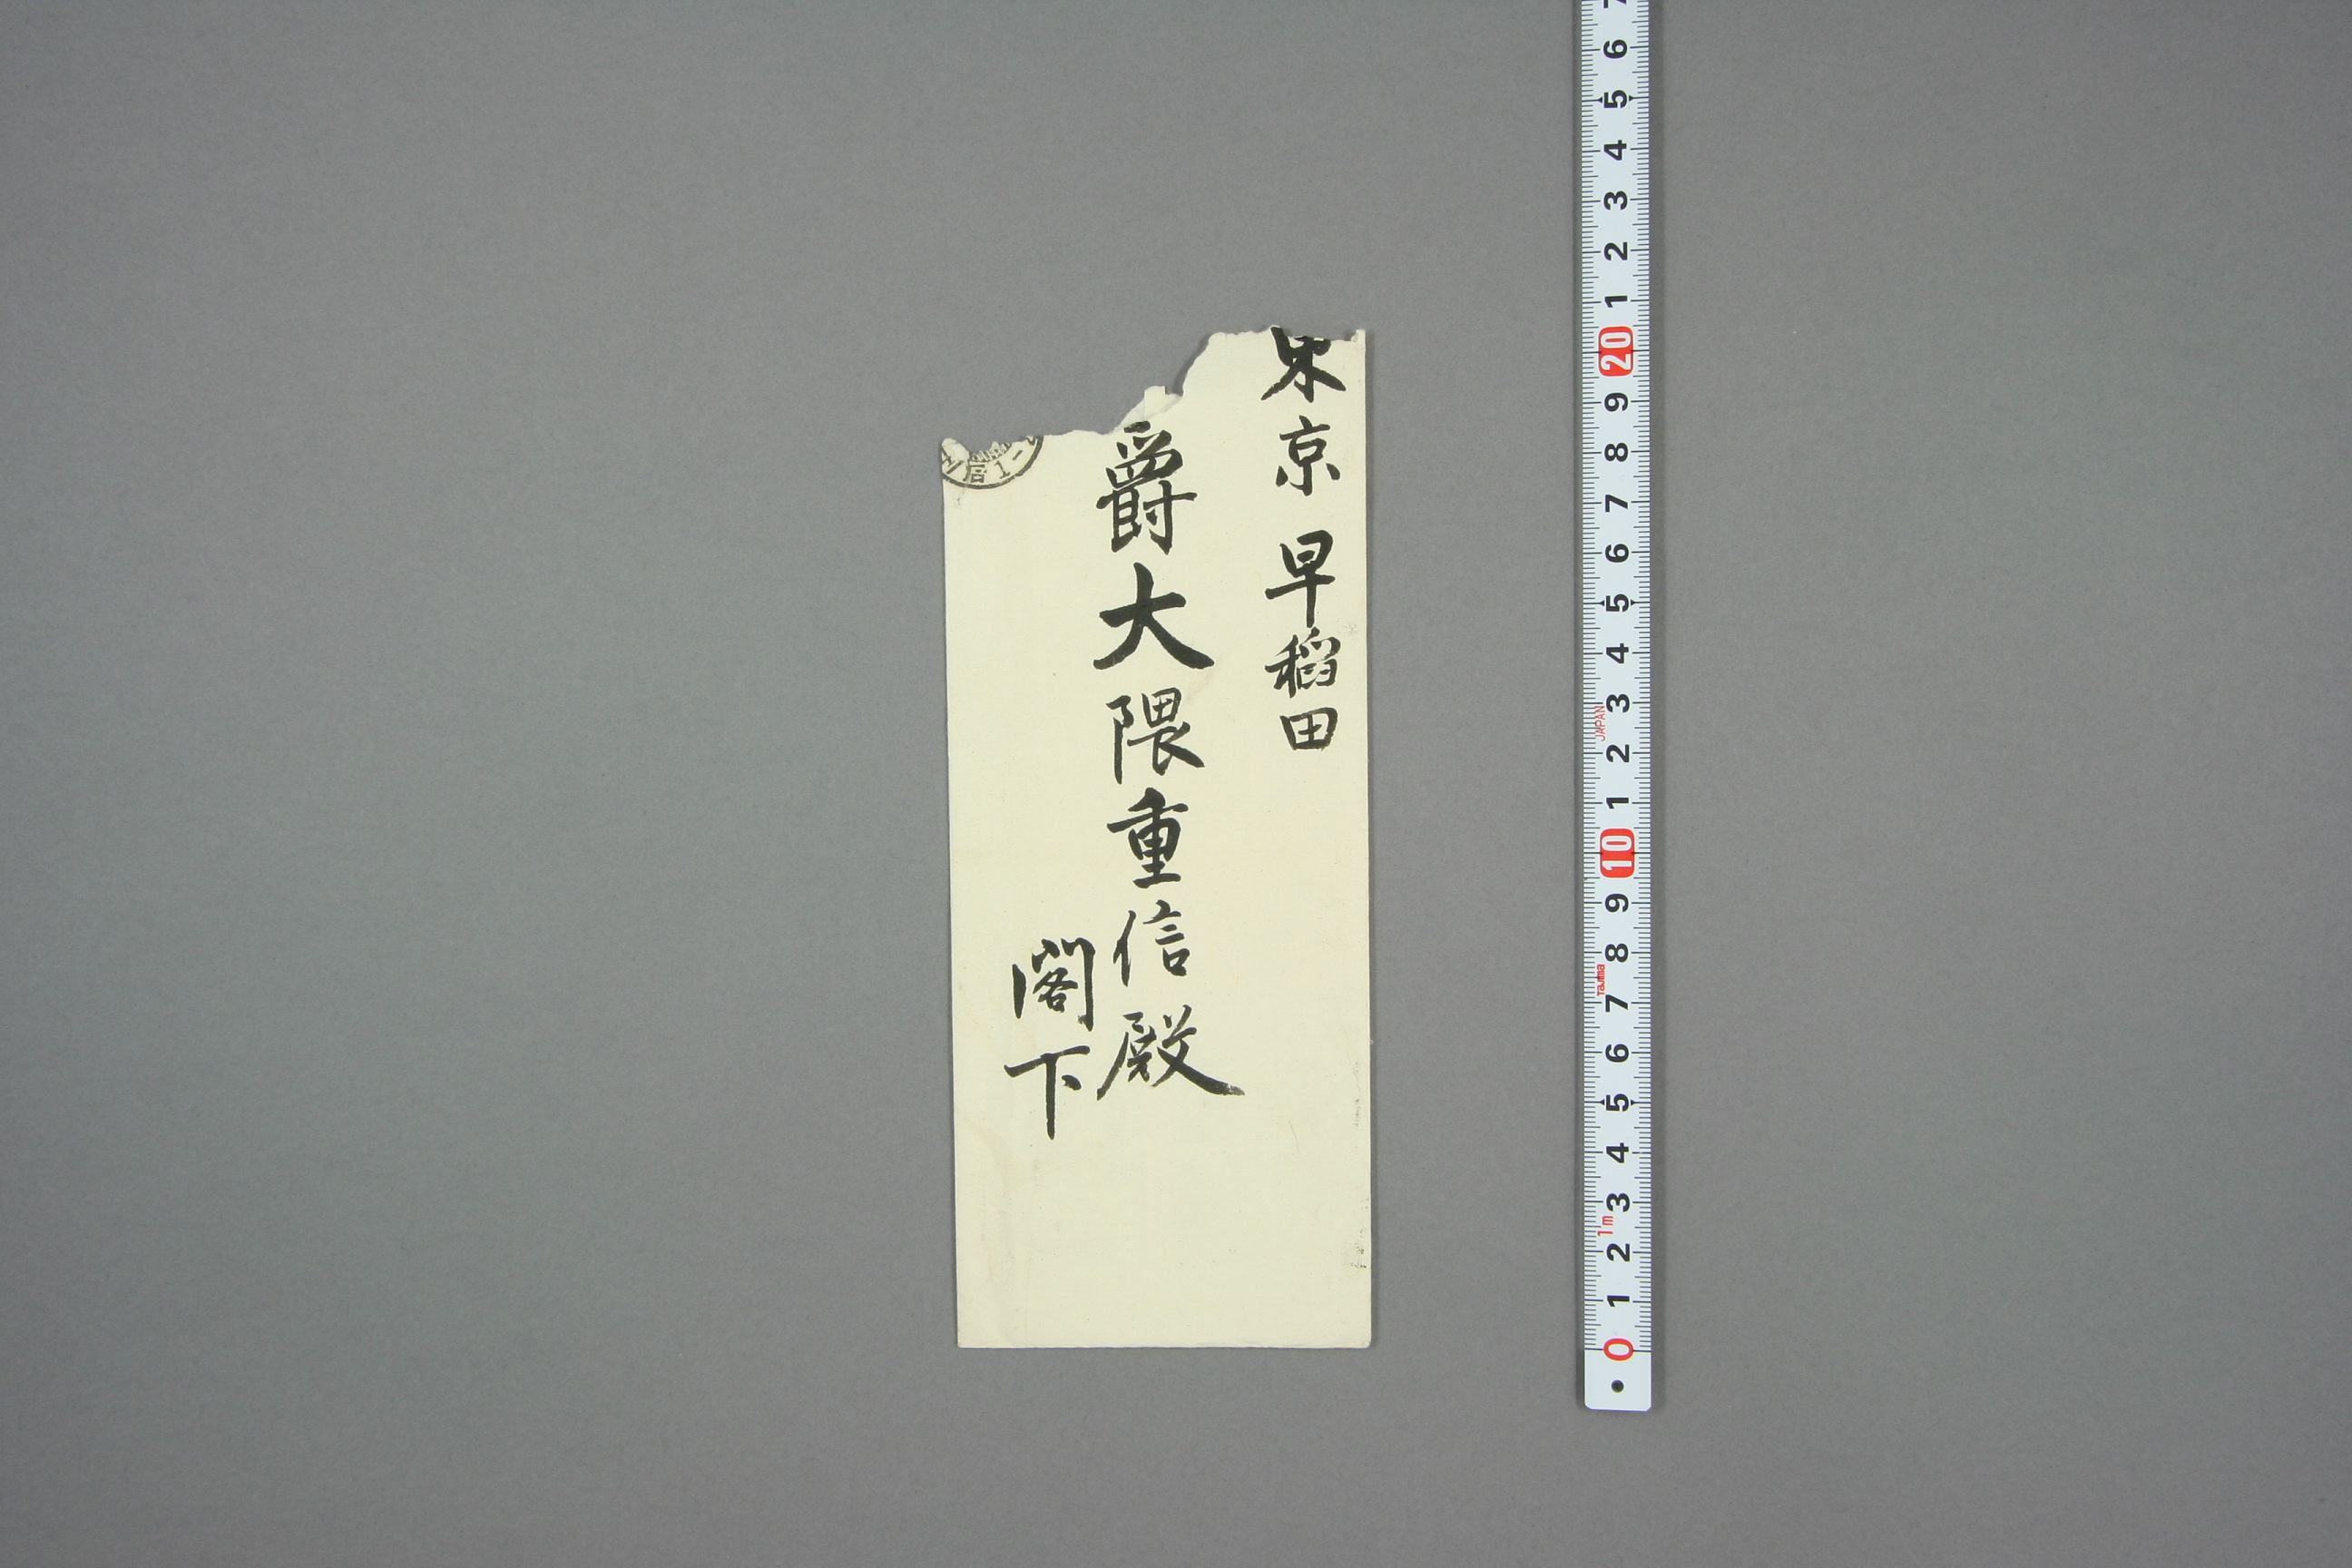 東京早稲田
爵大隈重信殿
閣下
7 6 5 4 3 2 1 20 9 8 7 6 5 4 3 2 1 10 9 8 7 6 5 4 3 2 1 0
JAPAN
Tajima
1m